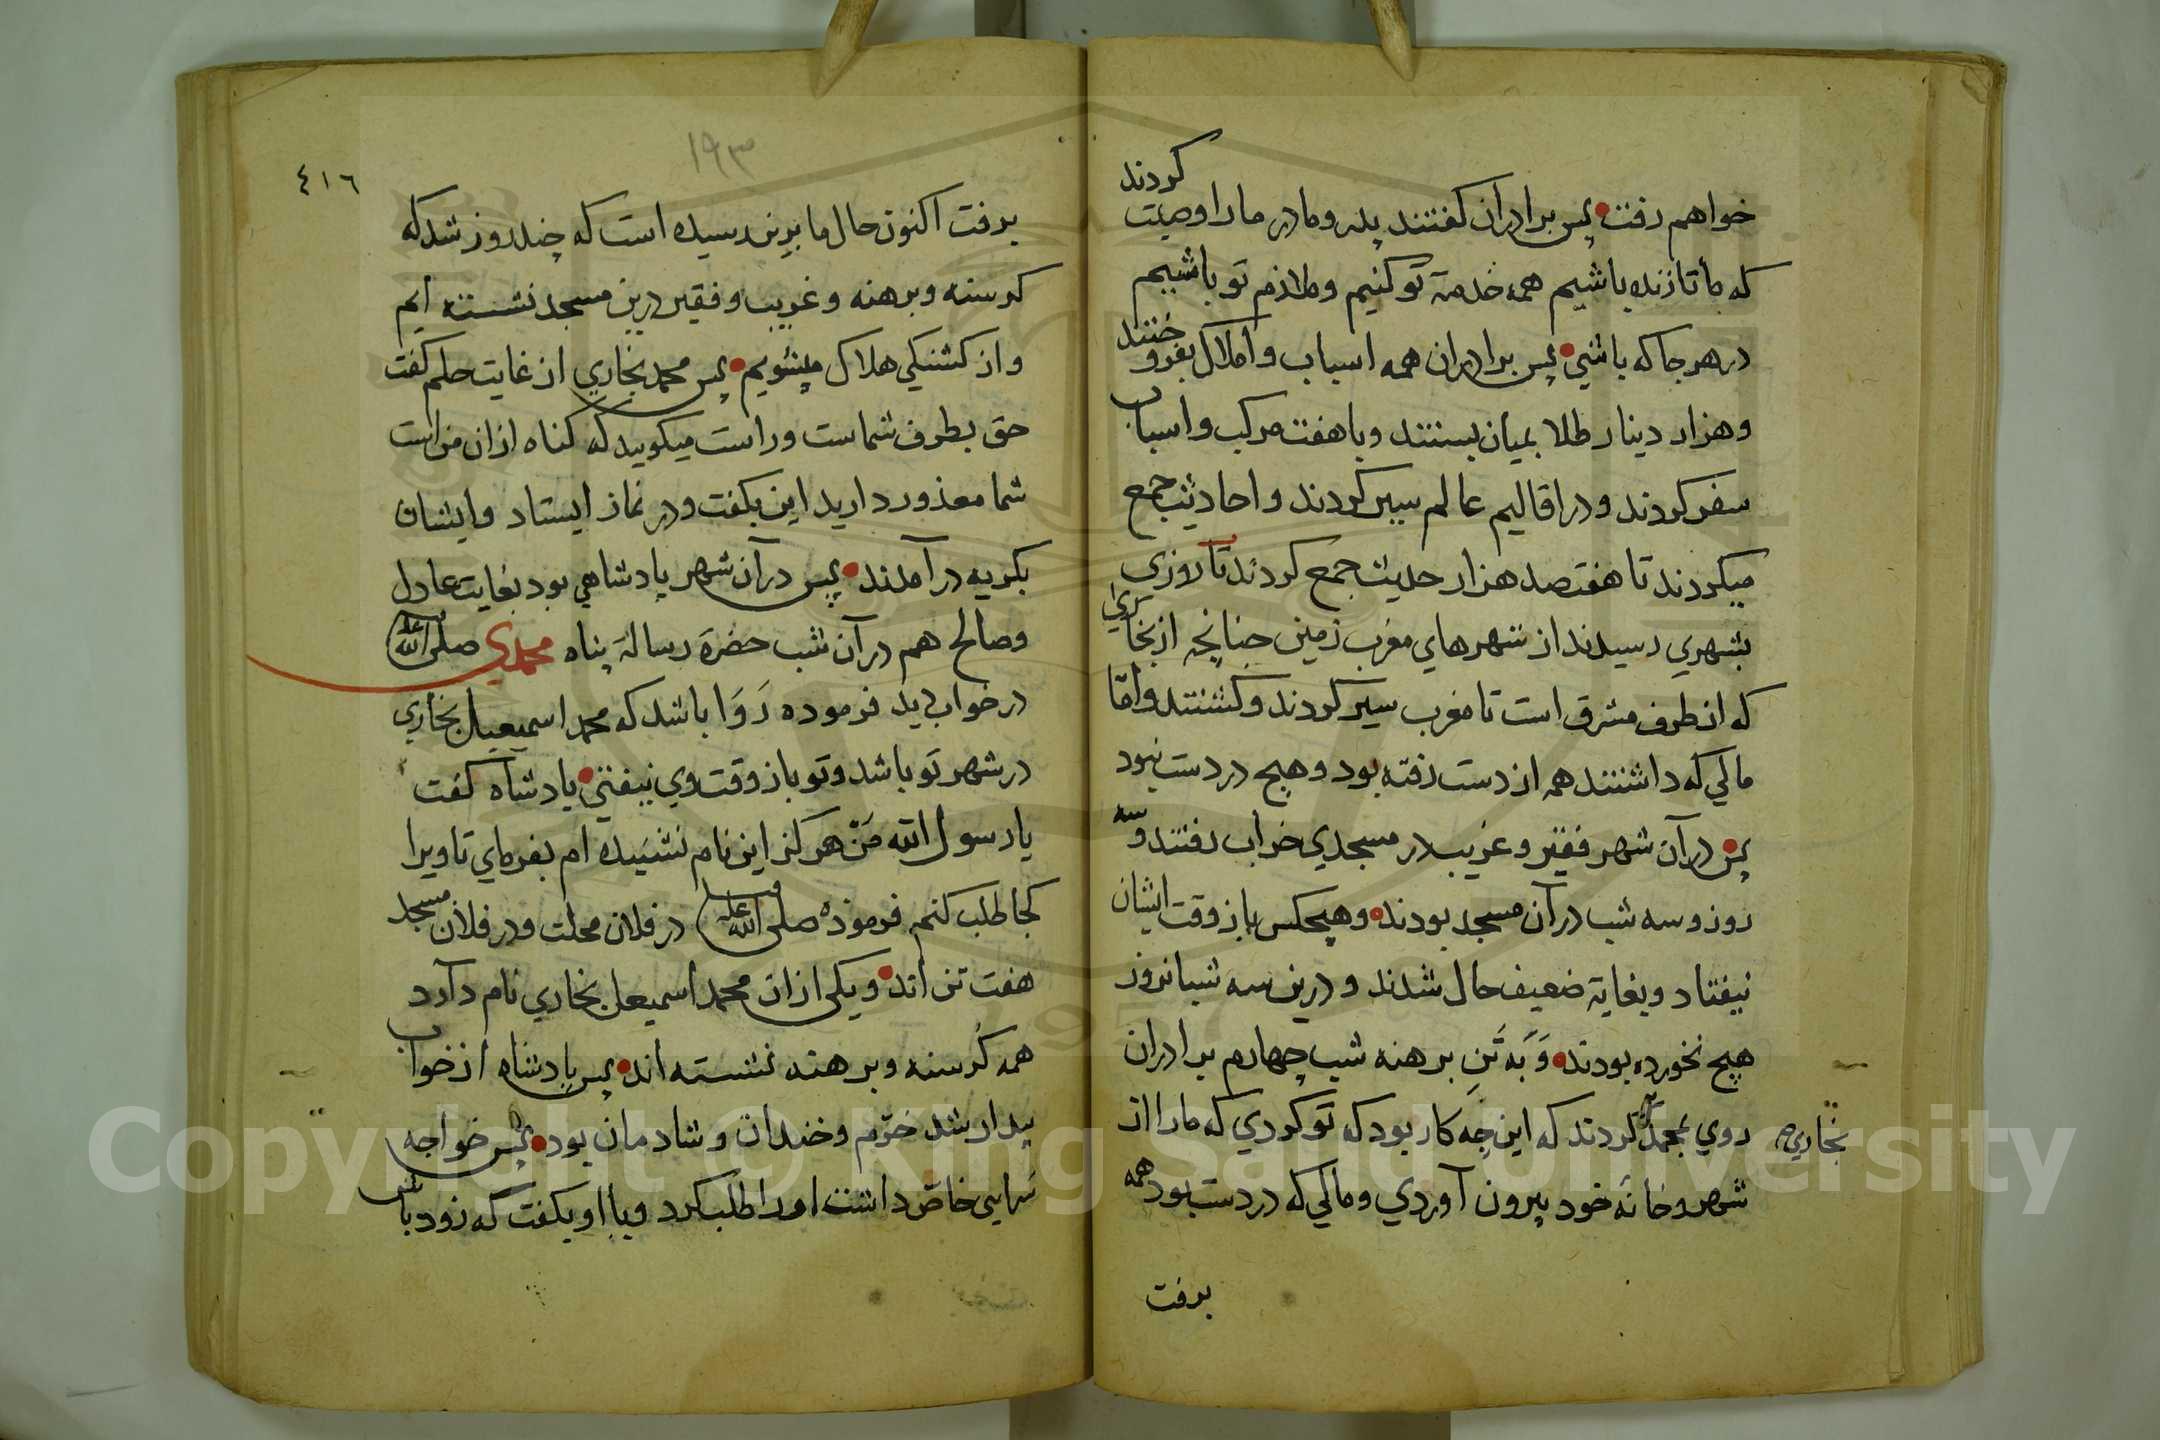 خواهم رفت پس برادران کفتند پدر و مادر ما را وصیت کردند
که ما تا زنده باشیم همه خدمة تو کنیم و ملازم تو باشییم
در هر جا که باشي پس برادران همه اسباب و املاک بفروختند
و هزار دینار طلا بمیان بستند و با هفت مرکب و اسباب
سفر کردند و در اقالیم عالم سیر کردند و احادیث جمع
میکردند تا هفتصد هزار حدیث جمع کردند تا روزی
بشهري رسیدند از شهرهاي مغرب زمین چنانچه از بخاراي
که از طرف مشرق است تا مغرب سیر کردند و کشتند و امّا
مالي که داشتند همه از دست رفته بود و هیچ در دست نبود
پس در آن شهر فقیر و غریب در مسجدي خراب رفتند و سه
روز و سه شب در آن مسجد بودند و هیچکس باز وقت ایشان
نیفتاد و بغایة ضعیف حال شدند و درین سه شبانروز
هیچ نخورده بودند وَ بَه تَنِ برهنه شب چهارم برادران
روي بمحمد کردند که این چَه کار بود که تو کردي که ما را از
بخاري
شهر و خانَه خود بیرون آوردي و مالي که در دست بود همه
برفت
١٩٣
٤١٦
برفت اکنون حال ما برین رسیده است که چند روز شد که
کرسنه و برهنه و غریب و فقیر درین مسجد نشسته ایم
و از کشنکي هلاک میشویم پس محمد بخاري از غایت حلم کفت
حق بطرف شماست و راست میکویید که کناه از ان من است
شما معذور دارید این بکفت و در نماز ایستاد و ایشان
بکریه در آمدند پس در آن شهر پادشاهي بود بغایت عادل
و صالح هم در آن شب حضرَة رسالة پناه محمدي صلی الله علیه
در خواب دید فرموده رَوَا باشد که محمد اسمیعیل بخاري
در شهر تو باشد و تو باز وقت وي نیفتي پادشاه کفت
یا رسول الله مَنْ هرکز این نام نشنیده ام بفرماي تا ویرا
کجا طلب کنم فرموده صلی الله علیه در فلان محلت و در فلان مسجد
هفت تن اند و یکی از ان محمد اسمیعل بخاري نام دارد
همه کُرسنه و برهنه نشسته اند پس پادشاه از خواب
بیدار شد خرّم و خندان و شادمان بود پس خواجه
سَرایی خاصّ داشت او را طلب کرد و با او بکفت که زود باش
Copyright © King Saud University